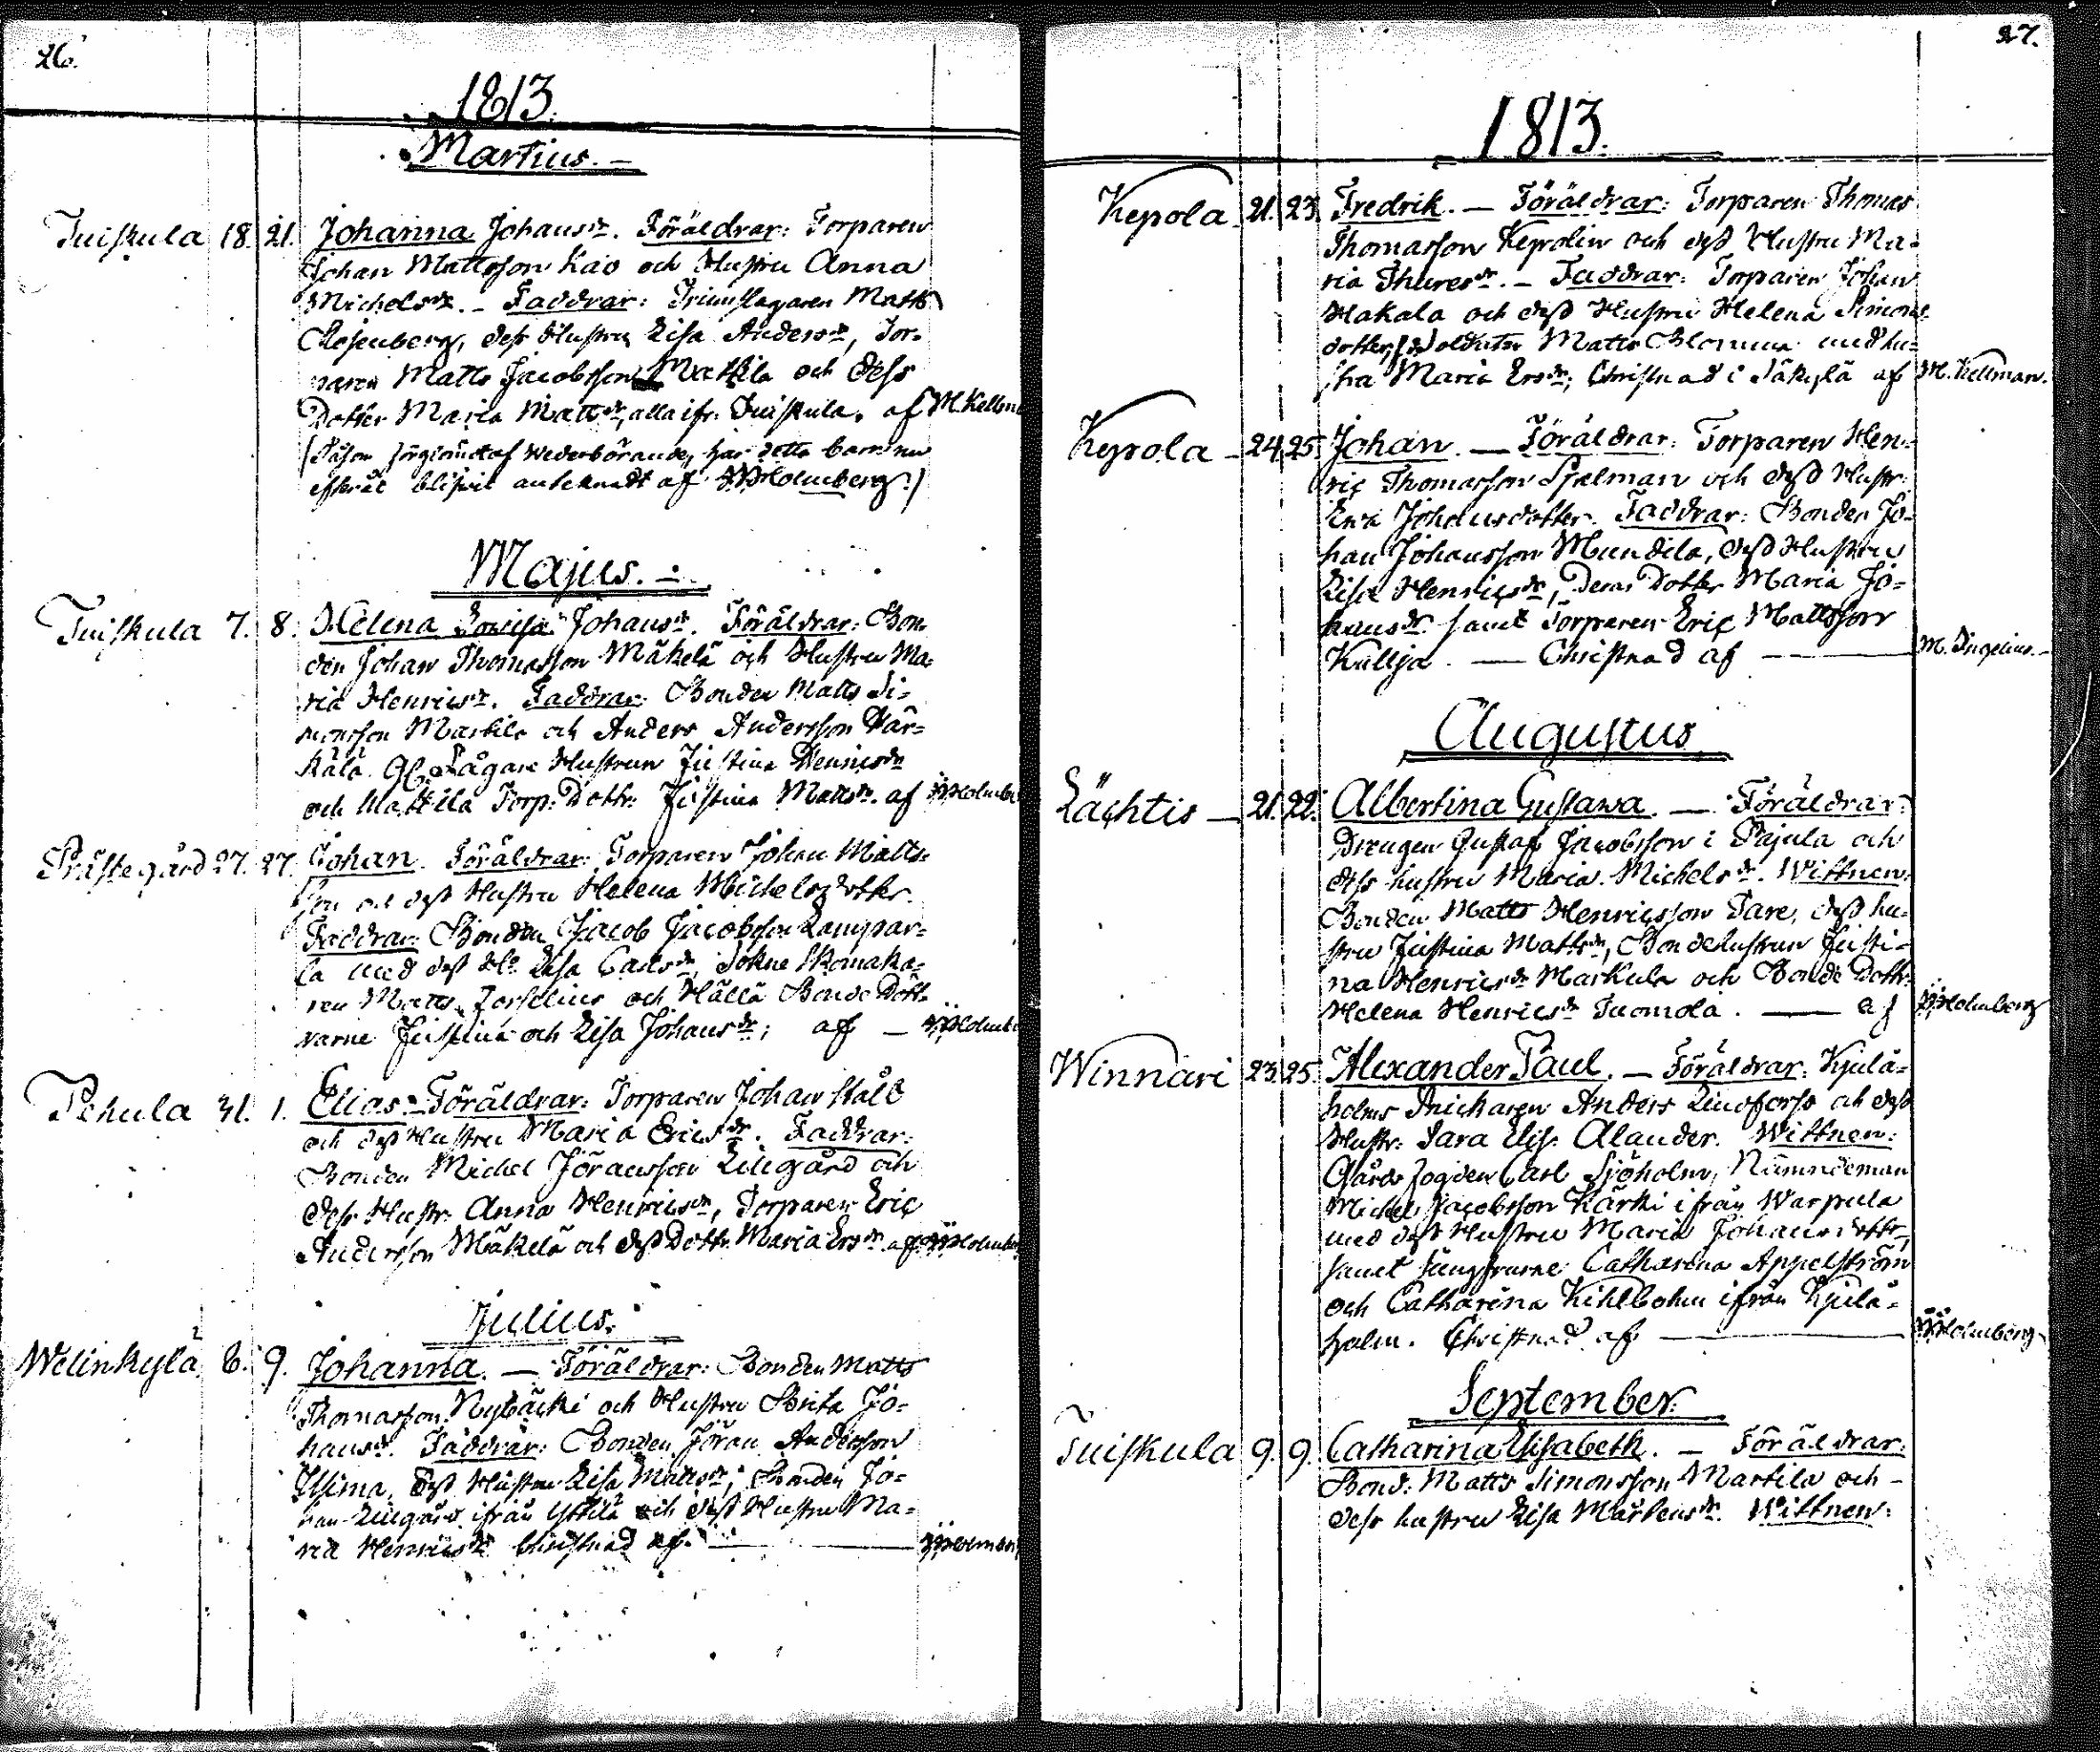 26.
1813.
Martius. —
Tuiskula 18. 21. Johanna Johansdr. Föräldrar: Torparen
Johan Mattsson Kao och Hustru Anna
Michelsdr. — Faddrar: Trumslagaren Matts
Rosenberg, dess Hustru Lisa Andersdr, Tor-
paren Matts Jacobsson Mattila och dess
Dotter Maria Mattsdr, alla ifr. Tuiskula. af M. Kellm
(Såsom af wederbörande, har detta barn nu
efteråt blifvit antecknadt af Holmberg.)
Majus. —
Tuiskula 7. 8. Helena Lovisa Johansdr. Föräldrar: Bon-
den Johan Thomasson Mäkelä och Hustru Ma-
ria Henricsdr. Faddrar: Bonden Matts Si-
monsson Martila och Anders Andersson
Hustrun Justina Henricsdr
och Mattila Torp. Dottr. Justina Mattsdr. af Holmbe
Prästegård 27. 27. Johan. Föräldrar: Torparen Johan Matts-
son och dess Hustru Helena Michelsdotter.
Faddrar: Bonden Jacob Jacobsson Lampar-
la med dess Ho Lisa Carlsdr, Sokne Skomaka-
ren Matts Forselius och Hällä Bonde Dött-
rarne Justina och Lisa Johansdr; af — Holmbe
Pehula 31. 1. Elias — Föräldrar: Torparen Johan Stål
och dess Hustru Maria Ericsdr. Faddrar:
Bonden Michel Jöransson Lillgård och
dess Hustr. Anna Henricsdr, Torparen Eric
Andersson Mäkelä och dess Dottr. Maria Ersdr. af Holmber
Julius.
Welinkylä 6. 9. Johanna. — Föräldrar: Bonden Matts
Thomasson Nybäcki och Hustru Brita Jo-
hansdr. Faddrar: Bonden Jöran Andersson
Uusima, dess Hustru Lisa Mattsdr; Bonden Jo-
han Lillgård ifrån Yttilä och dess Hustru Ma-
ria Henricsdr Christnad af. — Holmberg
27.
1813.
Kepola 21. 23. Fredrik. — Föräldrar: Torparen Thomas
Thomasson Kepolin och dess Hustru Ma-
ria Thuresdr. — Faddrar: Torparen Johan
Hakala och dess Hustru Helena Simons-
dotter, Soldaten Matts Blomma med hu-
stru Maria Ersdr; Christnad i Säkylä af M. Kellman.
Kepola — 24. 25. Johan. — Föräldrar: Torparen Hen-
ric Thomasson Spelman och dess Hustr.
Ewa Johansdotter. Faddrar: Bonden Jo-
han Johansson Mundila, dess Hustru
Lisa Henricsdr, Deras Dotter Maria Jo-
hansdr samt Torparen Eric Mattsson
Kallja. — Christnad af — M. Ingelius. —
Augustus
Lächtis — 21. 22. Albertina Gustawa. — Föräldrar:
Drengen Gustaf Jacobsson i Pajula och
dess hustru Maria Michelsdr. Wittnen:
Bonden Matts Henricsson Pare, dess hu-
stru Justina Mattsdr, Bondehustrun Justi-
na Henricsdr Markula och Bonde Dottr.
Helena Henricsdr Tuomola. — af Holmberg
Winnari 23. 25. Alexander Paul. — Föräldrar: Kjulä-
holms Snickaren Anders Lindforss och dess
Hustr: Sara Elis. Alander. Wittnen:
Gårds Fogden Carl Sjöholm, Nämndeman
Michel Jacobsson Kärki ifrån Warpula
med dess Hustru Maria Johansdottr,
samt Jungfrurne Catharina Appelström
och Catharina Kihlbohm ifrån Kjulä-
holm. Christnad af — Holmberg
September.
Tuiskula 9. 9. Catharina Elisabeth. — Föräldrar:
Bond. Matts Simonsson Martila och —
dess hustru Lisa Mårtensdr. Wittnen: